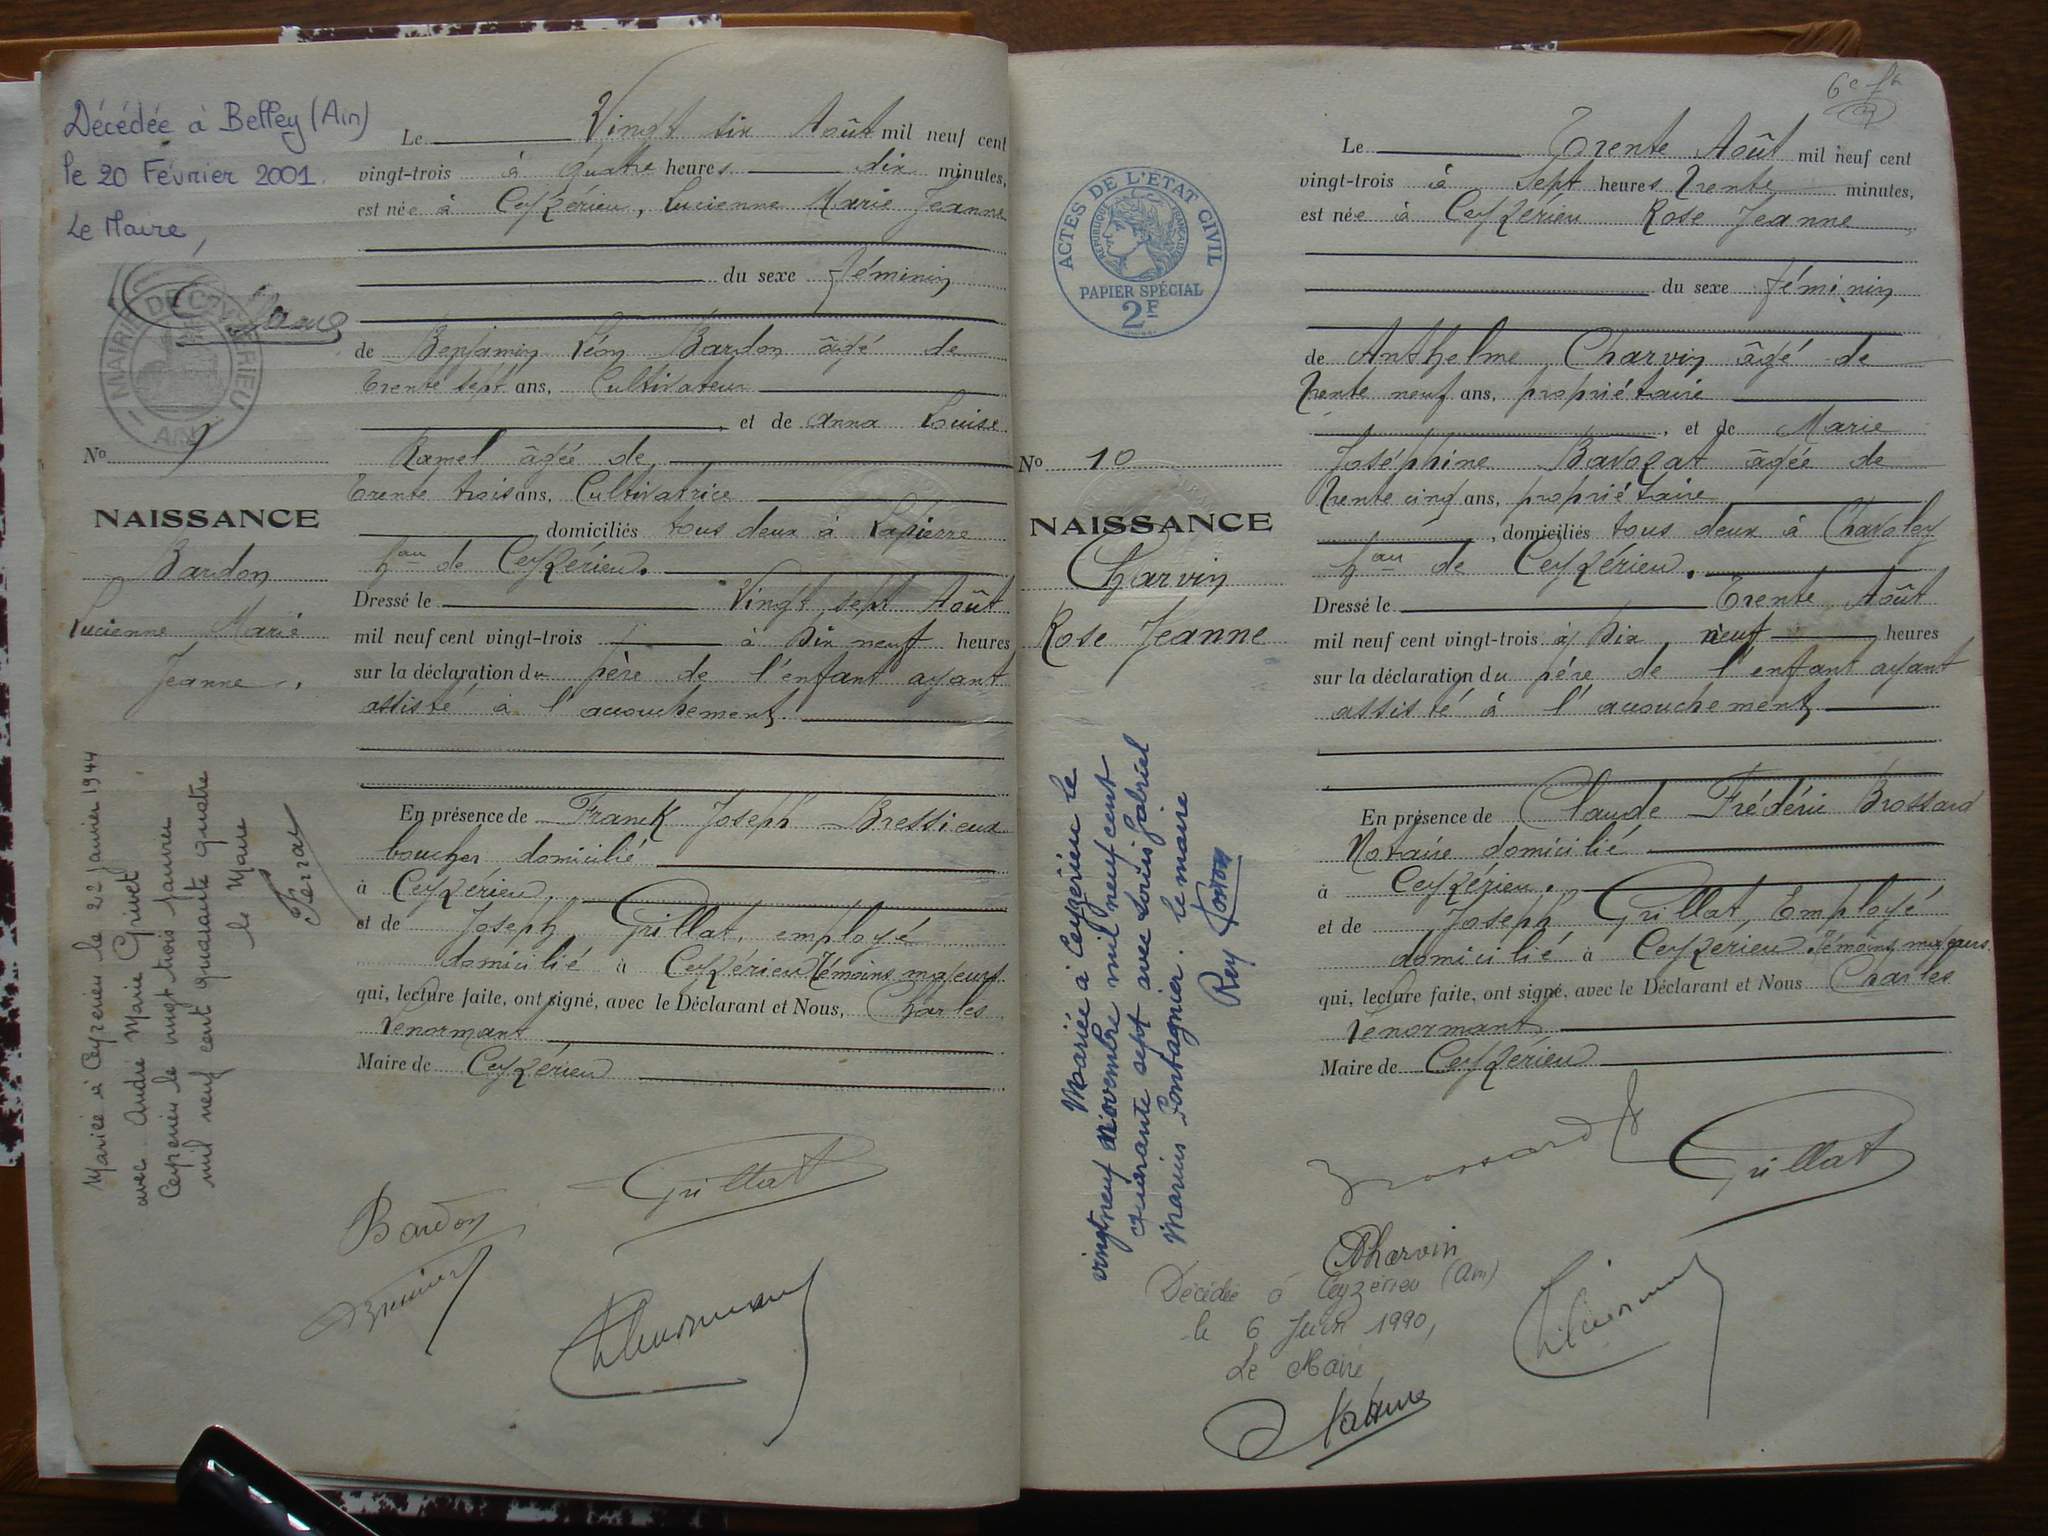 Décédée à Belley (Ain)
le 20 Février 2001.
Le Maire,
MAIRIE DE CEYZERIEU
AIN
No 9
NAISSANCE
Bardon
Lucienne Marie
Jeanne.
Mariée à Ceyzerieu le 22 janvier 1944
avec André Marie Grinet
Ceyzerieu le vingt trois janvier
mil neuf cent quarante quatre
le Maire
Le Vingt six Août mil neuf cent
vingt-trois à quatre heures dix minutes,
est née à Ceyzérieu, Lucienne Marie Jeanne
du sexe féminin
de Benjamin Léon Bardon âgé de
Trente sept ans, Cultivateur
, et de anna Louise
Ramel âgée de
Trente trois ans, Cultivatrice
domiciliés tous deux à Lapierre
hau de Ceyzérieu.
Dressé le Vingt sept Août
mil neuf cent vingt-trois à Dix neuf heures
sur la déclaration du père de l'enfant ayant
assisté à l'accouchement
En présence de Franck Joseph Bressieux
boucher domicilié
à Ceyzérieu,
et de Joseph Grillat, employé
domicilié à Ceyzérieu Témoins majeurs
qui, lecture faite, ont signé, avec le Déclarant et Nous, Charles
Lenormant
Maire de Ceyzérieu
Bardon
Grillat
6e f
ACTES DE L'ETAT CIVIL
REPUBLIQUE FRANÇAISE
PAPIER SPÉCIAL
2F
No 10
NAISSANCE
Charvin
Rose Jeanne
Mariée à Ceyzerieu le
vingt neuf novembre mil neuf cent
quarante sept avec Louis Gabriel
Marius Pontagnier. le maire
Rey
Le Trente Août mil neuf cent
vingt-trois à Sept heures Trente minutes,
est née à Ceyzérieu Rose Jeanne
du sexe féminin
de Anthelme Charvin âgé de
Trente neuf ans, propriétaire
, et de Marie
Joséphine Bavozat âgée de
Trente cinq ans, propriétaire
, domiciliés tous deux à Chavoley
hau de Ceyzérieu.
Dressé le Trente Août
mil neuf cent vingt-trois à Dix neuf heures
sur la déclaration du père de l'enfant ayant
assisté à l'accouchement
En présence de Claude Frédéric Brossard
Notaire domicilié
à Ceyzérieu.
et de Joseph Grillat, Employé
domicilié à Ceyzerieu Témoins majeurs
qui, lecture faite, ont signé, avec le Déclarant et Nous Charles
Lenormant
Maire de Ceyzérieu
Brossard
Grillat
Charvin
Décédée à Ceyzérieu (Ain)
le 6 Juin 1990,
Le Maire